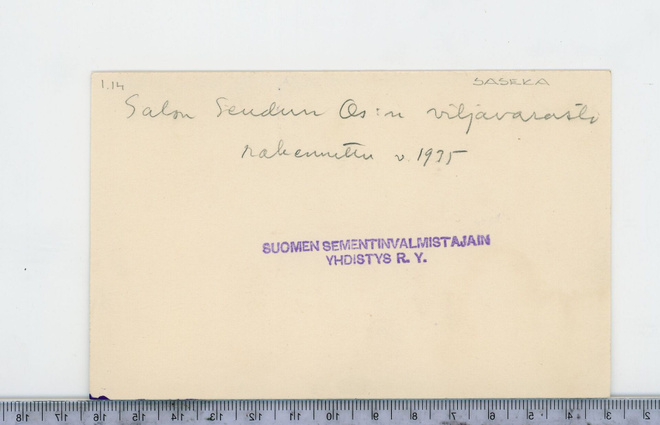 1.14
SASEKA
Salon Seudun Os:n viljavarasto
rakennettu v. 1935
SUOMEN SEMENTINVALMISTAJAIN
YHDISTYS R. Y.
18 17 16 15 14 13 12 11 10 9 8 7 6 5 4 3 2